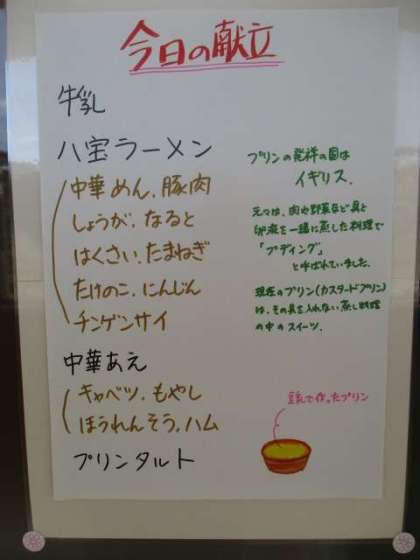 今日の献立
牛乳
八宝ラーメン
中華めん、豚肉
しょうが、なると
はくさい、たまねぎ
たけのこ、にんじん
チンゲンサイ
中華あえ
キャベツ、もやし
ほうれんそう、ハム
プリンタルト
プリンの発祥の国は
イギリス。
元々は、肉や野菜など具と
卵液を一緒に蒸した料理で
「プディング」
と呼ばれていました。
現在のプリン(カスタードプリン)
は、その具を入れない蒸し料理
の中のスイーツ。
豆乳で作ったプリン